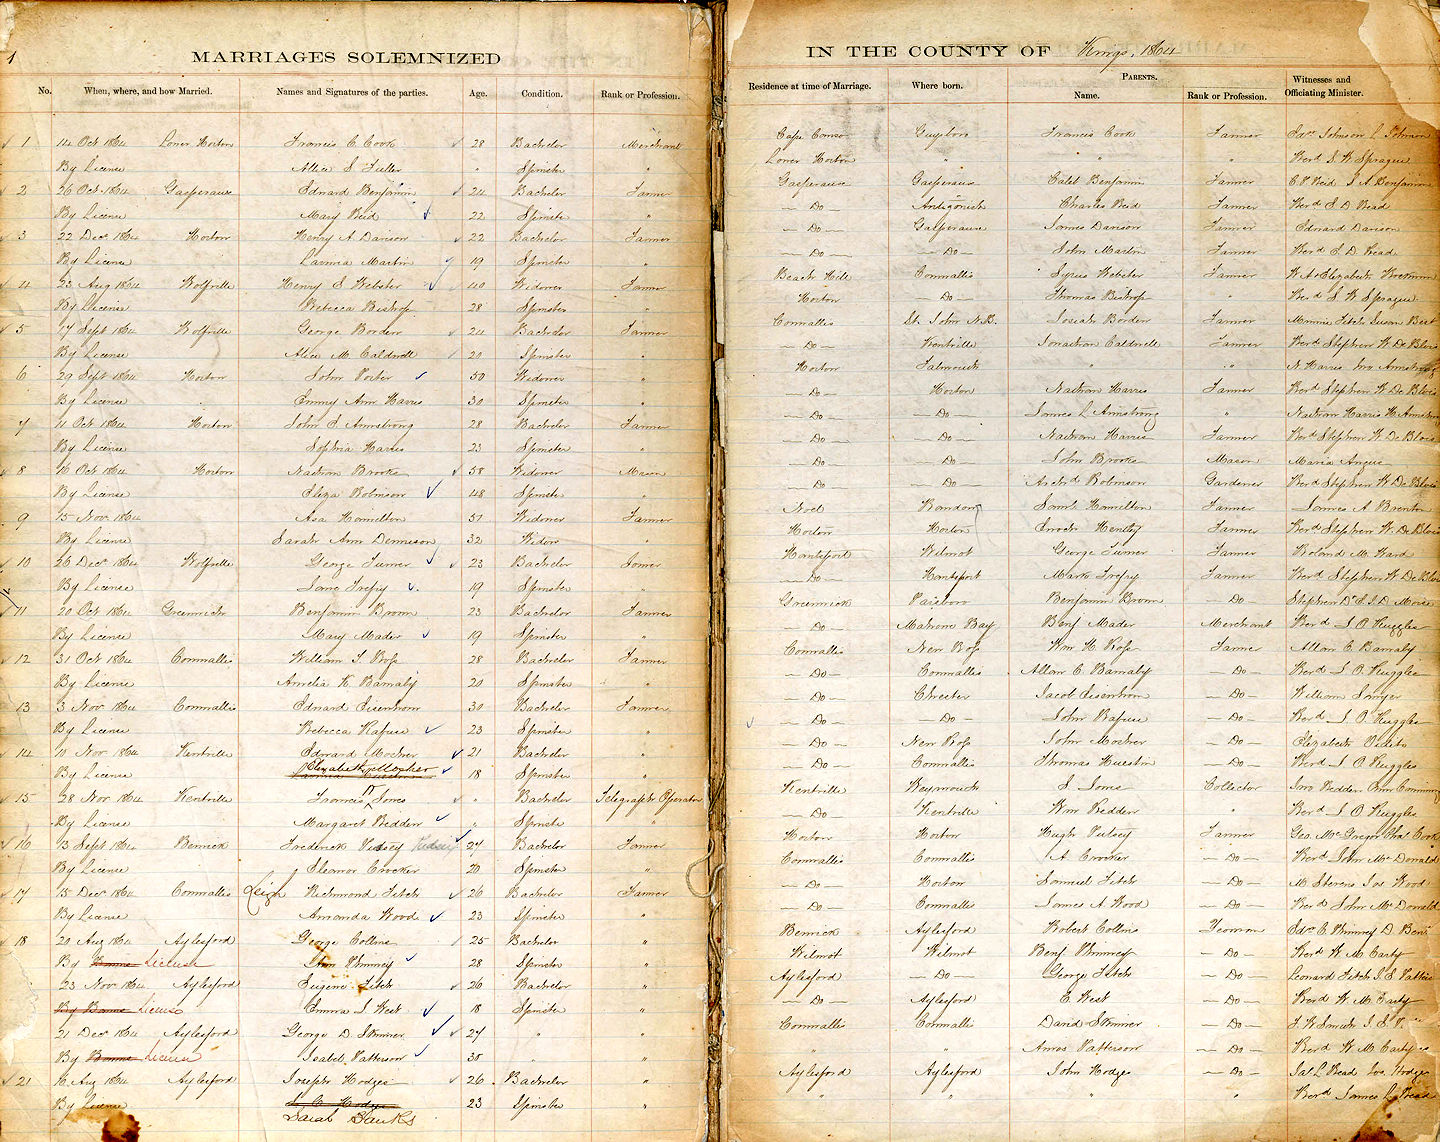 1
MARRIAGES SOLEMNIZED
No. When, where, and how Married. Names and Signatures of the parties. Age. Condition. Rank or Profession.
1 14 Oct 1864 Lower Horton Francis C Cook 28 Bachelor Merchant
By License Alice S Fuller " Spinster "
2 26 Oct 1864 Gaspereaux Edward Benjamin 24 Bachelor Farmer
By License Mary Reid 22 Spinster "
3 22 Decr 1864 Horton Henry A Davison 22 Bachelor Farmer
By License Lavinia Martin 19 Spinster "
4 23 Aug 1864 Wolfville Henry S Webster 40 Widower Farmer
By License Rebecca Bishop 28 Spinster "
5 17 Sept 1864 Wolfville George Borden 24 Bachelor Farmer
By License Alice M Caldwell 20 Spinster "
6 29 Sept 1864 Horton John Porter 50 Widower "
By License Emmy Ann Harris 30 Spinster "
7 11 Oct 1864 Horton John S Armstrong 28 Bachelor Farmer
By License Sophia Harris 23 Spinster "
8 16 Oct 1864 Horton Nathan Brooks 58 Widower Mason
By License Eliza Robinson 48 Spinster "
9 15 Nov 1864 Asa Hamilton 51 Widower Farmer
By License Sarah Ann Dennison 32 Widow "
10 26 Decr 1864 Wolfville George Turner 23 Bachelor Joiner
By License Jane Trefry 19 Spinster "
11 20 Oct 1864 Greenwich Benjamin Brown 23 Bachelor Farmer
By License Mary Mader 19 Spinster "
12 31 Oct 1864 Cornwallis William J. Ross 28 Bachelor Farmer
By License Amelia K Barnaby 20 Spinster "
13 3 Nov 1864 Cornwallis Edward Eisenhom 30 Bachelor Farmer
By License Rebecca Rafuse 23 Spinster "
14 11 Nov 1864 Kentville Edward Mocher 21 Bachelor "
By License Elizabeth Gallagher 18 Spinster "
15 28 Nov 1864 Kentville Francis Jones " Bachelor Telegraph Operator
By License Margaret Redden " Spinster "
16 13 Sept 1864 Berwick Frederick 27 Bachelor Farmer
By License Eleanor Crocker 20 Spinster "
17 15 Decr 1864 Cornwallis Leigh Richmond Fitch 26 Bachelor Farmer
By License Amanda Wood 23 Spinster "
18 20 Aug 1864 Aylesford George Collins 25 Bachelor "
By Banns License Ann Phinney 28 Spinster "
23 Nov 1864 Aylesford Eugene Fitch 26 Bachelor "
By Banns License Emma J West 18 Spinster "
21 Decr 1864 Aylesford George D. Skinner 27 " "
By Banns License Isabel Patterson 30 " "
21 16 Aug 1864 Aylesford Joseph Hodges 26 Bachelor "
By License Hodges 23 Spinster "
Sarah Banks
IN THE COUNTY OF Kings, 1864
Residence at time of Marriage. Where born. PARENTS. Name. Rank or Profession. Witnesses and Officiating Minister.
Cape Canso Guysboro Francis Cook Farmer Johnson
Lower Horton " " " Revd S W Sprague
Gaspereaux Gaspereaux Caleb Benjamin Farmer C P Reid J A Benjamin
— Do — Antigonish Charles Reid Farmer Revd S D Read
— Do — Gaspereaux James Davison Farmer Edward Davison
— Do — — Do — John Martin Farmer Revd S D Read
Beach Hill Cornwallis Syrus Webster Farmer W A Elizabeth
Horton — Do — Thomas Bishop " Revd S W Sprague
Cornwallis St. John N.B. Josiah Borden Farmer Minnie Fitch Susan Best
— Do — Kentville Jonathan Caldwell Farmer Revd Stephen W De Blois
Horton Falmouth " " N Harris Armstrong
— Do — Horton Nathan Harris Farmer Revd Stephen W De Blois
— Do — — Do — James L Armstrong " Nathan Harris
— Do — — Do — Nathan Harris Farmer Revd Stephen W De Blois
— Do — — Do — John Brooks Mason Maria Angus
— Do — — Do — Archd Robinson Gardener Revd Stephen W De Blois
Noel Saml Hamilton Farmer James A Brenton
Horton Horton Enoch Farmer Revd Stephen W. De Blois
Hantsport Wilmot George Turner Farmer Roland M Ward
— Do — Hantsport Mark Trefry Farmer Revd Stephen W De Blois
Greenwich Parsboro Benjamin Brown — Do — Stephen
— Do — Mahone Bay Benj Mader Merchant Revd J O Ruggles
Cornwallis New Ross Wm H Ross Farmer Allan C Barnaby
— Do — Cornwallis Allan C Barnaby — Do — Revd J O Ruggles
— Do — Chester Jacob Eisenhom — Do — William
— Do — — Do — John Rafuse — Do — Revd J. O Ruggles
— Do — New Ross John Mocher — Do — Elizabeth
— Do — Cornwallis Thomas — Do — Revd J O Ruggles
Kentville Weymouth S Jones Collector Redden
" Kentville Wm Redden " Revd J O Ruggles
Horton Horton Hugh Farmer Geo. McGregor
Cornwallis Cornwallis A Crocker — Do — Revd John McDonald
— Do — Horton Samuel Fitch — Do — M Stevens Jos Wood
— Do — Cornwallis James A Wood — Do — Revd John McDonald
Berwick Aylesford Robert Collins Yeoman Phinney
Wilmot Wilmot Benj Phinney — Do — Revd W M Carty
Aylesford — Do — George Fitch — Do — Leonard Fitch
— Do — Aylesford E West — Do — Revd W M Carty
Cornwallis Cornwallis David Skinner — Do — Smith
" " Amos Patterson — Do — Revd W M Carty
Aylesford Aylesford John Hodges — Do — Read Hodges
" " " " Revd James L Read